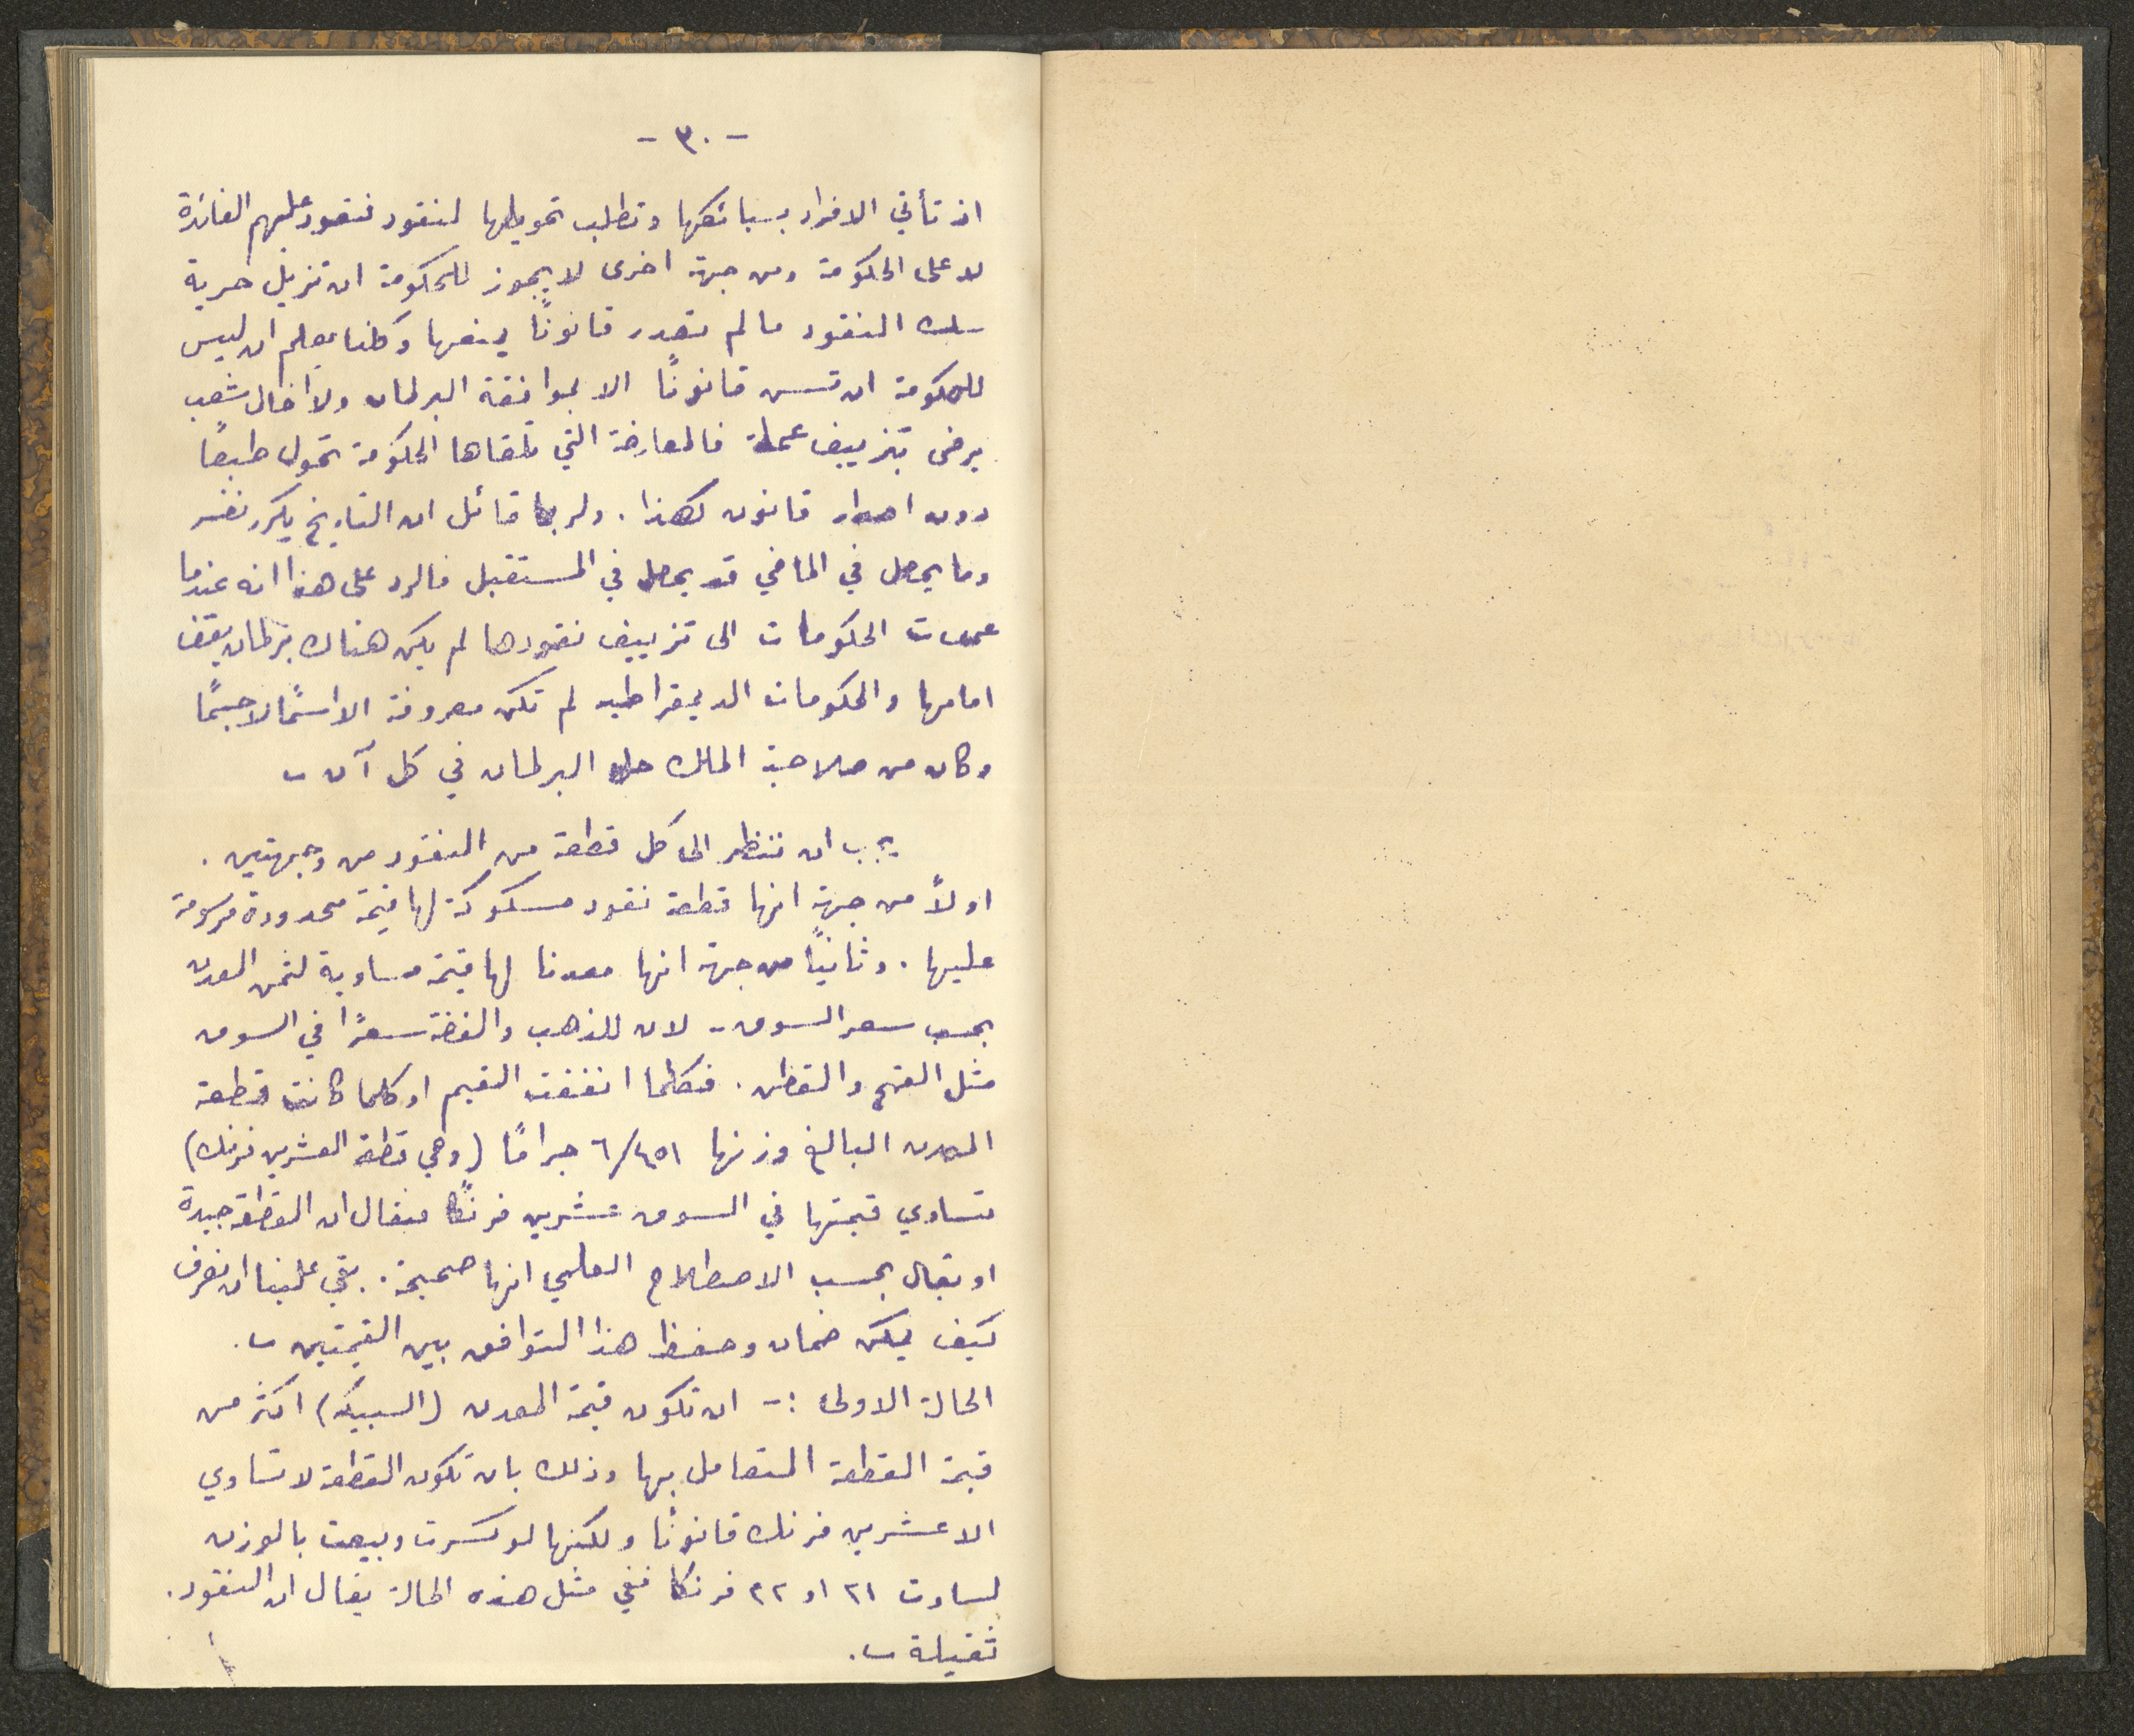 - ٣٠ -
اذ تأتي الافراد بسبائكها وتطلب تحويلها لنقود فتعود عليهم الفائدة
لا على الحكومة ومن جهة اخرى لا يجوز للحكومة ان تزيل حرية
سك النقود ما لم تصدر قانونًا يمنعها وكلنا يعلم ان ليس
للحكومة ان تسن قانونًا الا بموافقة البرلمان ولا اخال شعب
يرضى بتزييف عملة فالمعارضة التي تلقاها الحكومة تحول طبعًا
دون اصدار قانون كهذا . ولربما قائل ان التاريخ يكرر نفسه
وما يحصل في الماضي قد يحصل في المستقبل فالرد على هذا انه عندما
عمدت الحكومات الى تزييف نقودها لم يكن هناك برلمان يقف
امامها والحكومات الديمقراطيه لم تكن معروفة الا اسمًا لا جسمًا
وكان من صلاحية الملك حل البرلمان في كل آن ـ
يجب ان ننظر الى كل قطعة من النقود من وجهتين .
اولاً من جهة انها قطعة نقود مسكوكة لها قيمة محدودة مرسومة
عليها . وثانيًا من جهة انها معدنا لها قيمة مساوية لثمن المعدن
بحسب سعر السوق - لان للذهب والفضة سعرًا في السوق
مثل القمح والقطن . فكلما اتفقت القيم او كلما كانت قطعة
المعدن البالغ وزنها ٦/٤٥١ جرامًا (وهي قطعة العشرين فرنك)
تساوي قيمتها في السوق عشرين فرنكًا فيقال ان القطعة جيدة
او يقال بحسب الاصطلاح العلمي انها صحيحة . بقي علينا ان نعرف
كيف يمكن ضمان وحفظ هذا التوافق بين القيمتين ـ .
الحالة الاولى :- ان تكون قيمة المعدن (السبيكة) اكثر من
قيمة القطعة المتعامل بها وذلك بان تكون القطعة لا تساوي
الا عشرين فرنك قانونًا ولكنها لو كسرت وبيعت بالوزن
لساوت ٢١ او ٢٢ فرنكا ففي مثل هذه الحالة يقال ان النقود .
ثقيلة ـ .